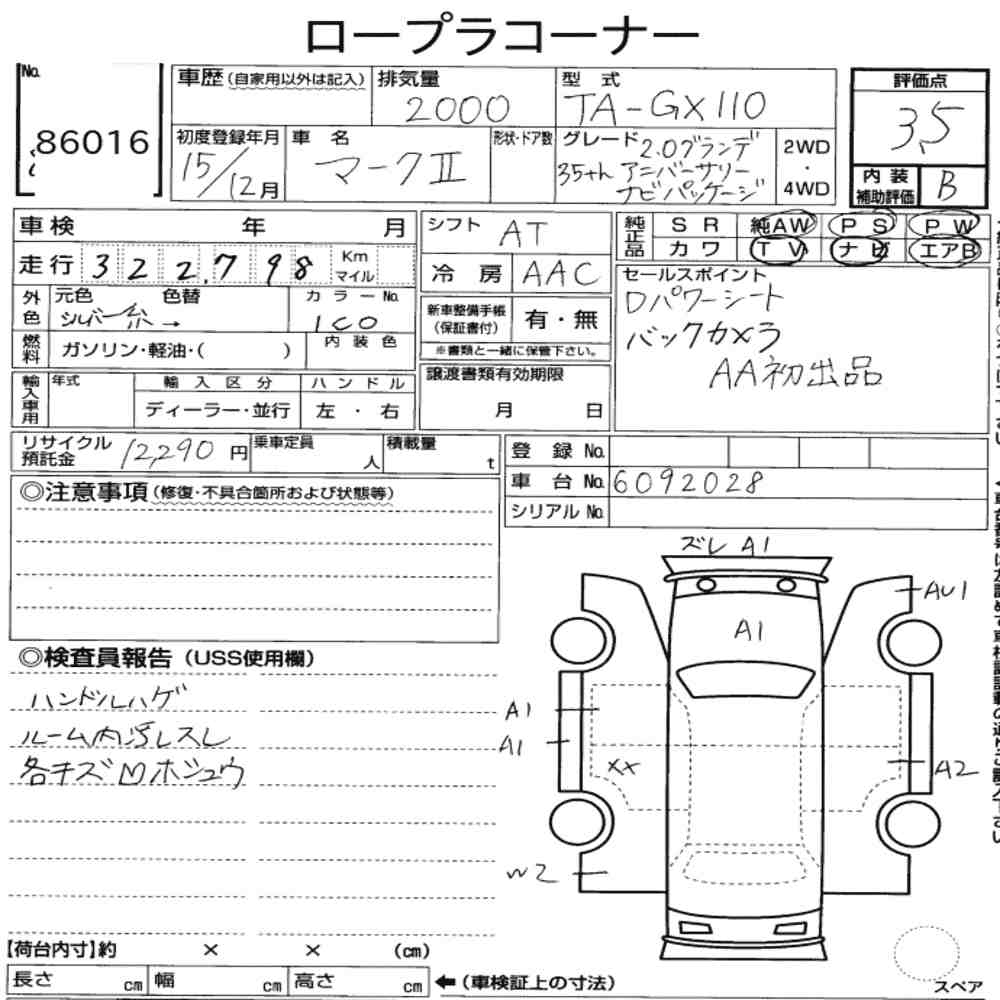 ロープラコーナー
No. 86016
車歴 (自家用以外は記入) 排気量 2000 型式 TA-GX110
初度登録年月 15/12月 車名 マークⅡ 形状・ドア数 グレード 2.0グランデ
35th アニバーサリー
ナビパッケージ
2WD
・
4WD
評価点
3.5
内装
補助評価 B
車検 年 月
走行 322,798 Km
マイル
外色 元色 シルバー 色替 系→ カラーNo. 1C0
燃料 ガソリン・軽油・( ) 内装色
輸入車用 年式 輸入区分 ハンドル
ディーラー・並行 左・右
シフト AT
冷房 AAC
新車整備手帳
(保証書付) 有・無
※書類と一緒に保管下さい。
譲渡書類有効期限
月 日
純正品 SR 純AW PS PW
カワ TV ナビ エアB
セールスポイント
Dパワーシート
バックカメラ
AA初出品
リサイクル
預託金 12,290円 乗車定員 人 積載量 t
登録No.
車台No. 6092028
シリアルNo.
◎注意事項 (修復・不具合箇所および状態等)
◎検査員報告 (USS使用欄)
ハンドルハゲ
ルーム内汚レスレ
各キズ凹ホシュウ
ズレ A1
AU1
A1
A1
A1
XX
A2
W2
【荷台内寸】約 × × (cm)
長さ cm 幅 cm 高さ cm ←(車検証上の寸法)
スペア